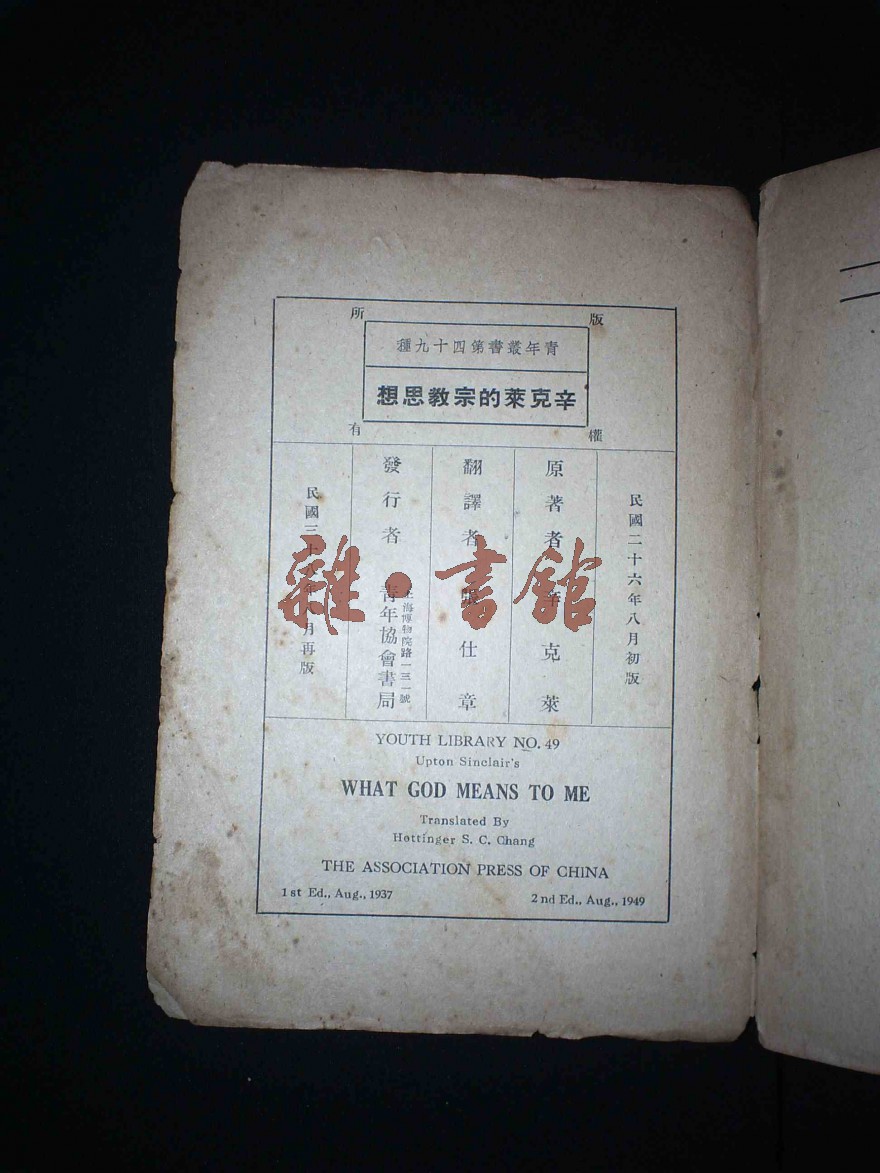 版權所有
青年叢書第四十九種
辛克萊的宗教思想
民國二十六年八月初版
原著者 辛克萊
翻譯者 張仕章
發行者 青年協會書局
上海博物院路一三一號
民國三十八年八月再版
雜·書館
YOUTH LIBRARY NO. 49
Upton Sinclair's
WHAT GOD MEANS TO ME
Translated By
Hottinger S. C. Chang
THE ASSOCIATION PRESS OF CHINA
1 st Ed., Aug., 1937
2 nd Ed., Aug., 1949